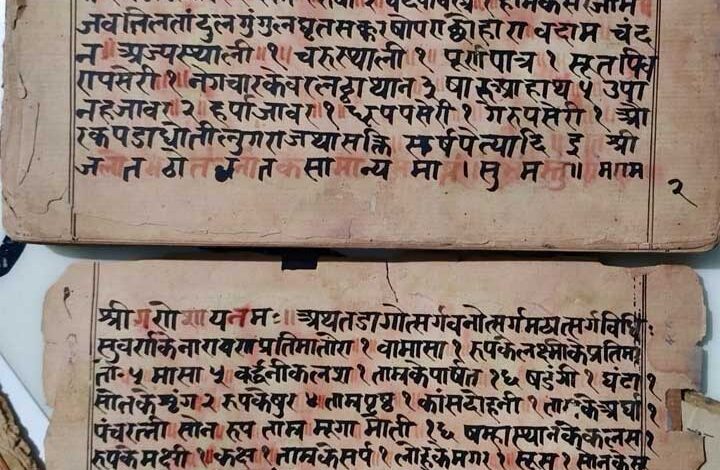 जवतिलतांदुलगुगुलघृतसक्करषोपराछोहारावदामचंद
न अज्यस्थाली १ चरुस्थाली १ पूर्णपात्र १ सूतपिव
रापसेरी १ नगचारकेवरलट्टाथान ३ षारुआहाथ ५ उपा
नहजावर २ हर्पाजावर १ ६ रुपपसेरी १ गेरुपसेरी १ औ
रकपडाधोतीलुगराजथासक्ति सर्षपेत्यादि इ श्री
ज ल त ठा त सामान्य मा । सु म स्तु ॥ मराम
२
श्रीगणेशायनमः ॥ अथतडागोत्सर्गवनोत्सर्गमठोत्सर्गविधिः
सुवर्णकेनारायणप्रतिमातोरा १ वामासा १ रुपकेलक्ष्मीकेप्रतिम
तो ५ मासा ५ वर्द्धनीकलश १ ताम्रकेपार्षत १६ षडंगी १ घंटा १
सोनकेशृंग २ रुपकेषुर ४ ताम्रपृष्ठ १ कांसदोहनी १ ताम्रकेअर्घा १
पंचरत्नी सोन रुप ताम्र मूगा मोती १६ षम्हास्थानकेकलस १
रुपकेमक्षी १ कक्ष १ ताम्रकेसर्प १ लोहकेमगर १ सूस १ सोनकेस